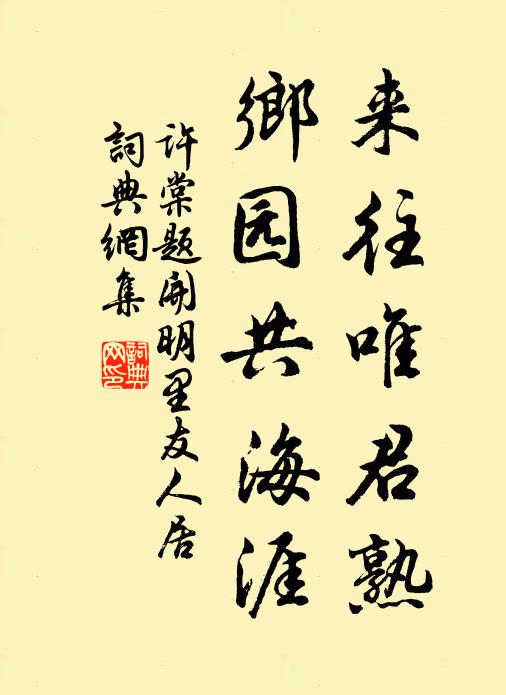 来往唯君熟
鄉园共海涯
許棠题開明里友人居
詞典網集
詞典网印